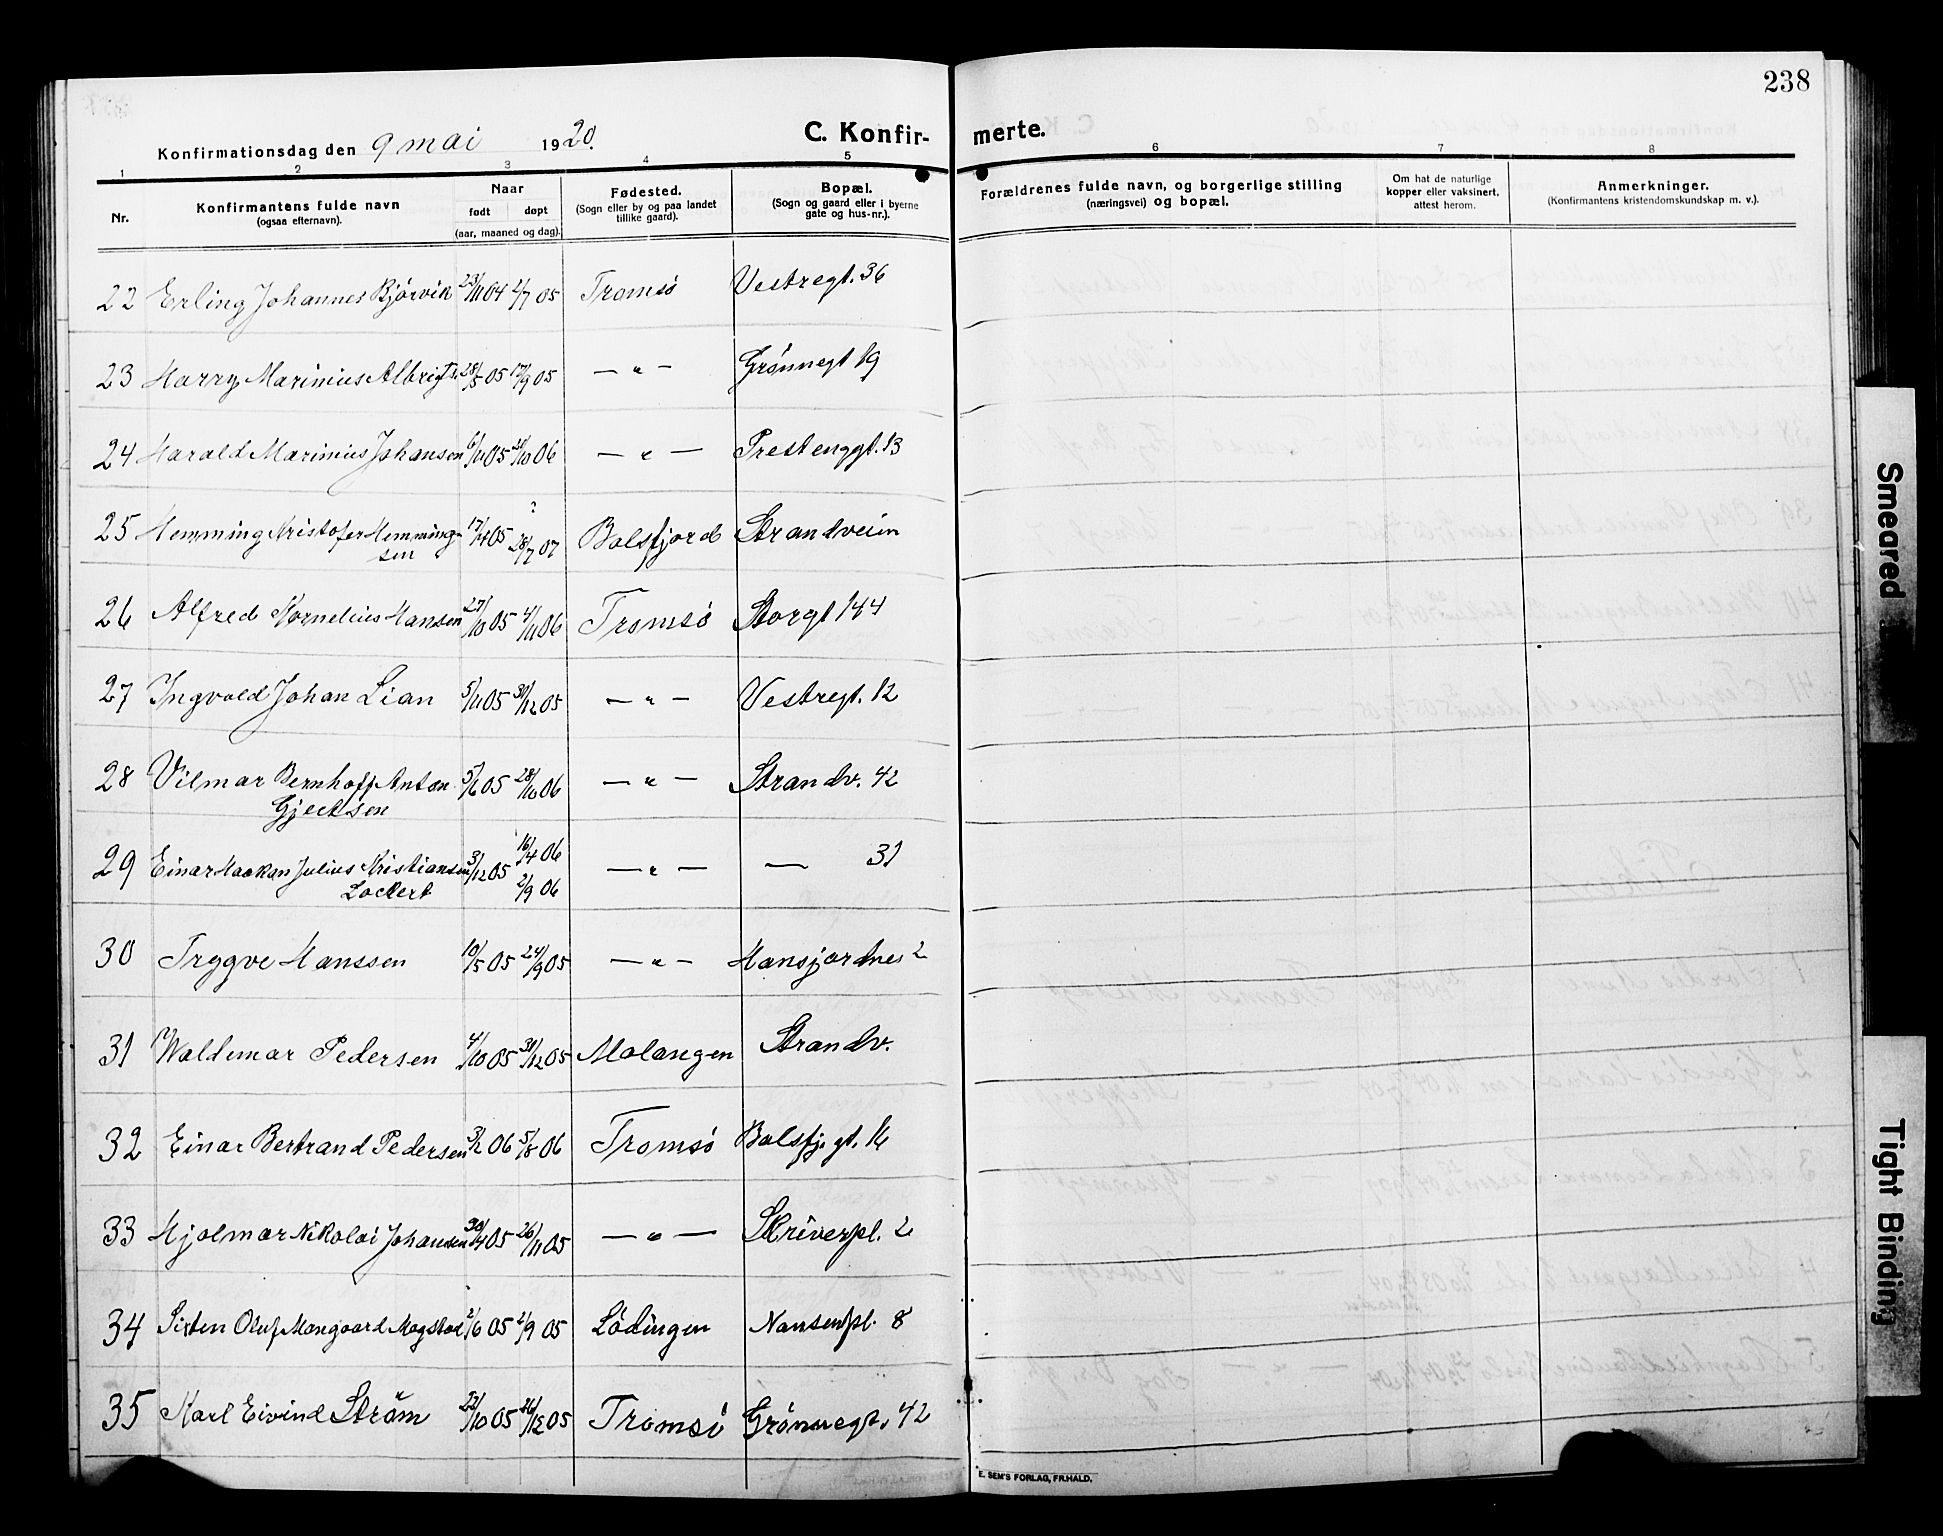 238
Konfirmationsdag den 9 mai 1920.
C. Konfir-
merte.
1 2 3 4 5 6 7 8
Nr.
Konfirmantens fulde navn
(ogsaa efternavn).
Naar
født døpt
(aar, maaned og dag).
Fødested.
(Sogn eller by og paa landet
tillike gaard).
Bopæl.
(Sogn og gaard eller i byerne
gate og hus-nr.).
Forældrenes fulde navn, og borgerlige stilling
(næringsvei) og bopæl.
Om hat de naturlige
kopper eller vaksinert.
attest herom.
Anmerkninger.
(Konfirmantens kristendomskundskap m. v.).
22 Erling Johannes Bjørvik 23/11 04 2/7 05 Tromsø Vestregt. 36
23 Harry Marinius Albrigts. 28/5 05 17/9 05 — " — Grønnegt 19
24 Harald Marinius Johansen 6/11 05 21/10 06 — " — Prestenggt. 13
?
25 Hemming Kristofer Hemming- 17/4 05 28/7 07 Balsfjord Strandveien
sen
26 Alfred Kornelius Hansen 27/10 05 4/11 06 Tromsø Storgt 144
27 Ingvald Johan Lian 5/11 05 31/12 05 — " — Vestregt. 12
28 Vilmar Bernhoff Anton 5/6 05 28/10 06 — " — Strandv. 42
Gjertsen
29 Einar Haakan Julius Kristiansen 3/12 05 16/4 06 — " — — 31
Lockert 2/9 06
30 Tryggve Hanssen 10/5 05 24/9 05 — " — Hansjordnes 2
31 Waldemar Pedersen 4/10 05 31/12 05 Malangen Strandv.
32 Einar Bertrand Pedersen 3/2 06 5/8 06 Tromsø Balsfj. gt. 16
33 Hjalmar Nikolai Johansen 30/4 05 26/11 05 — " — Skriverpl. 2
34 Sixten Oluf Mangaard Magstad 2/6 05 2/9 05 Lødingen Nansenpl. 8
35 Karl Eivind Strøm 22/10 05 26/12 05 Tromsø Grønnegt. 42
E. SEM'S FORLAG, FR.HALD.
Smeared
Tight Binding